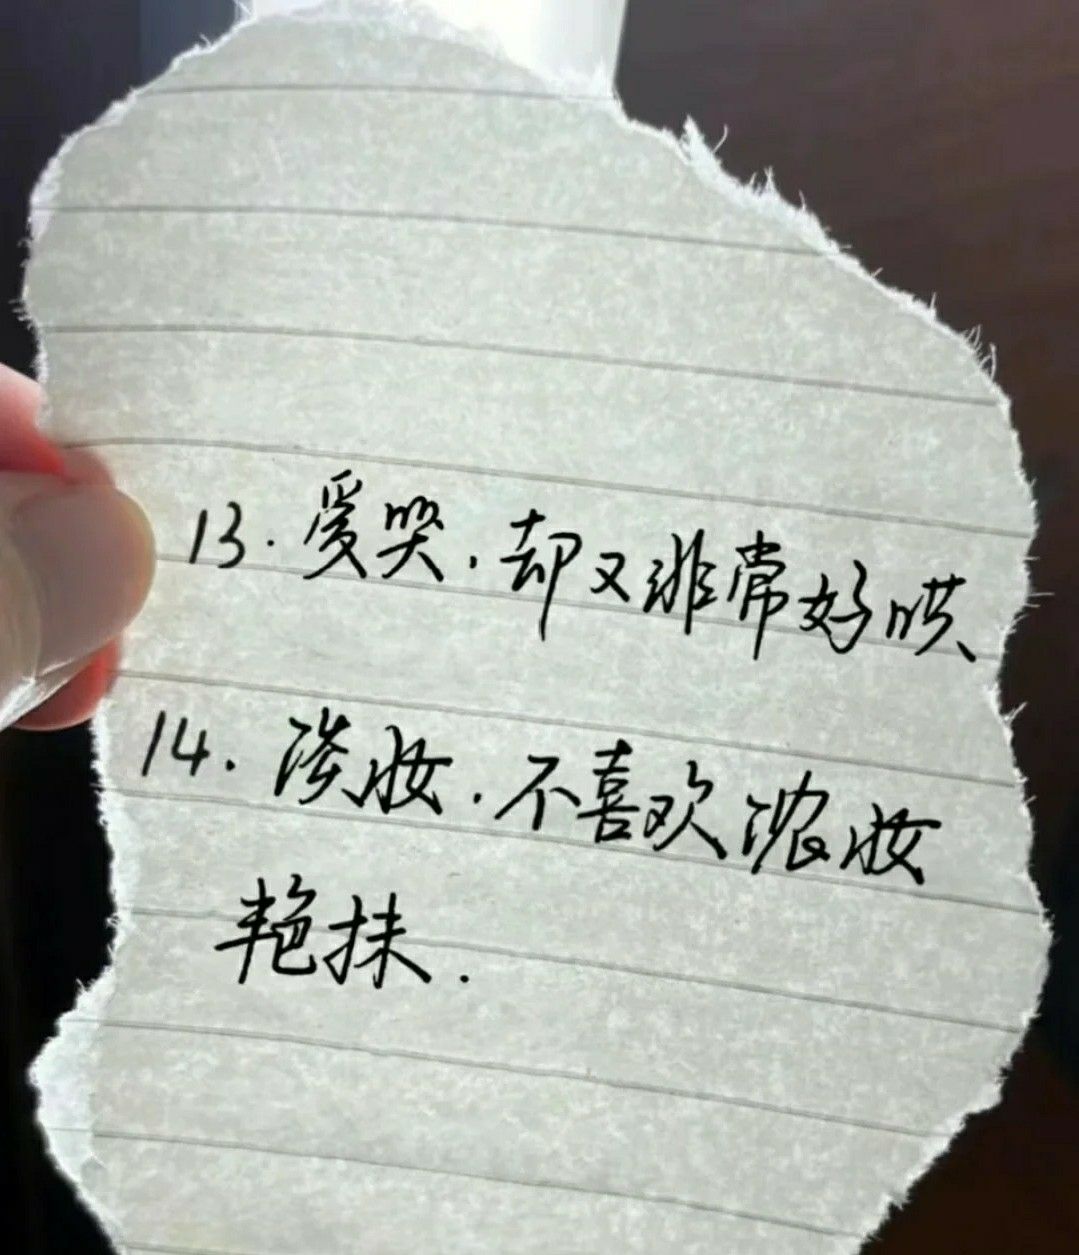 13.爱哭,却又非常好哄、
14.淡妆.不喜欢浓妆
艳抹.